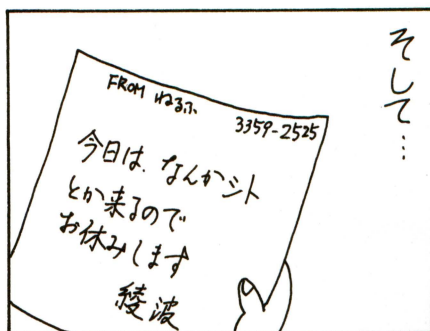 そして…
FROM ねるふ
3359-2525
今日は、なんかシト
とか来るので
お休みします
綾波